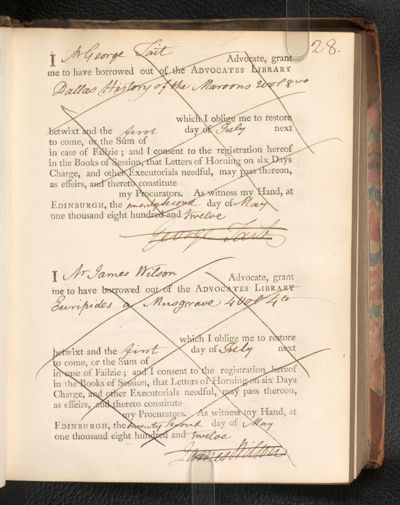 28.
I Mr George Tait Advocate, grant
me to have borrowed out of the ADVOCATES LIBRARY
Dallas History of the Maroons 2 vol 8vo
which I oblige me to restore
betwixt and the first day of July next
to come, or the Sum of
in case of Failzie ; and I consent to the registration hereof
in the Books of Session, that Letters of Horning on six Days
Charge, and other Executorials needful, may pass thereon,
as effeirs, and thereto constitute
my Procurators. As witness my Hand, at
EDINBURGH, the twenty second day of May
one thousand eight hundred and twelve
George Tait
I Mr James Wilson Advocate, grant
me to have borrowed out of the ADVOCATES LIBRARY
Euripides a Musgrave 4 vol 4to
which I oblige me to restore
betwixt and the first day of July next
to come, or the Sum of
in case of Failzie ; and I consent to the registration hereof
in the Books of Session, that Letters of Horning on six Days
Charge, and other Executorials needful, may pass thereon,
as effeirs, and thereto constitute
my Procurators. As witness my Hand, at
EDINBURGH, the twenty second day of May
one thousand eight hundred and twelve
James Wilson